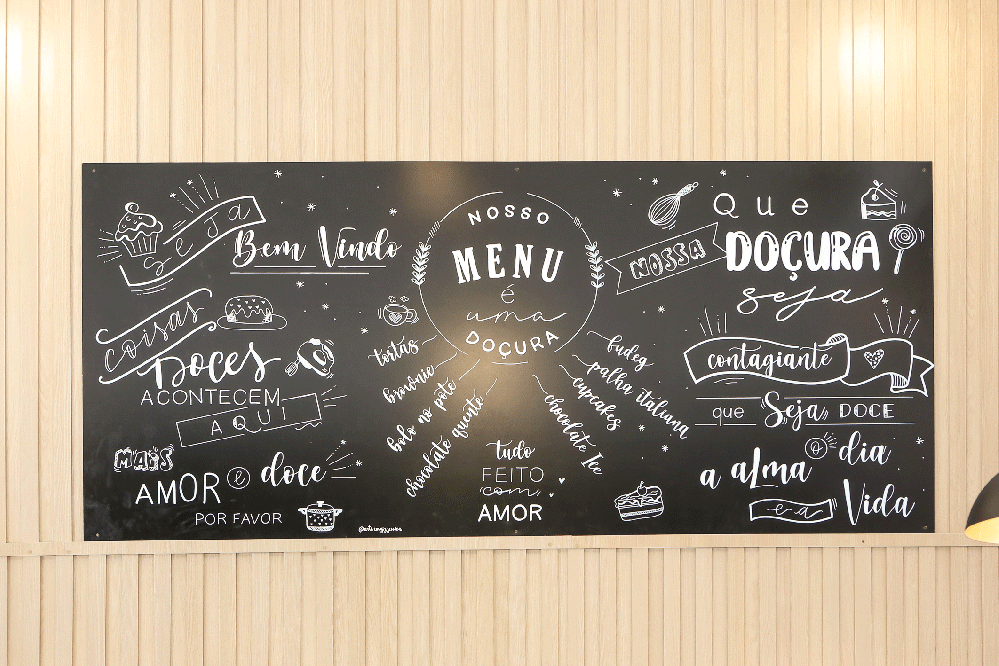 Seja
Bem Vindo
Coisas
Doces
ACONTECEM
AQUI
MAIS
AMOR e doce
POR FAVOR
NOSSO
MENU
é
uma
DOÇURA
tortas
brownie
bolo no pote
chocolate quente
fudeg
palha italiana
cupcakes
chocolate Ice
tudo
FEITO
com
AMOR
Que
NOSSA DOÇURA
seja
contagiante
que Seja DOCE
o dia
a alma
e a Vida